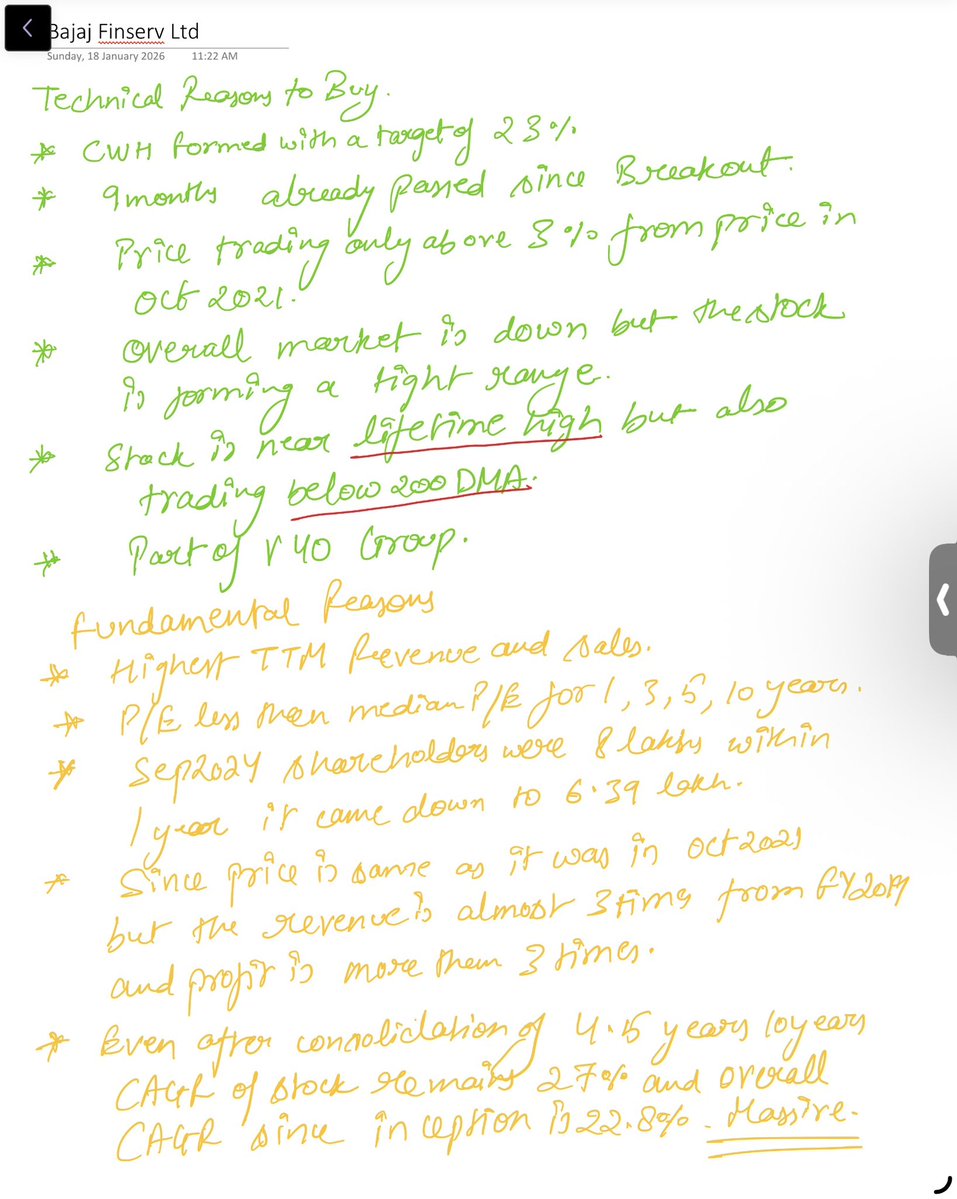 Bajaj Finserv Ltd
Sunday, 18 January 2026 11:22 AM
Technical Reasons to Buy.
* CWH formed with a target of 23%
* 9 months already passed since Breakout.
* Price trading only above 3% from price in
Oct 2021.
* Overall market is down but the stock
is forming a tight range.
* Stock is near lifetime high but also
trading below 200 DMA.
* Part of V40 Group.
Fundamental Reasons
* Highest TTM Revenue and sales.
* P/E less then median P/E for 1, 3, 5, 10 years.
* Sep 2024 shareholders were 8 lakhs within
1 year it came down to 6.39 lakh.
* Since price is same as it was in Oct 2021
but the revenue is almost 3 times from FY2019
and profit is more them 3 times.
* Even after consolidation of 4.5 years 10 years
CAGR of stock remains 27% and overall
CAGR since inception is 22.8%. Massive.